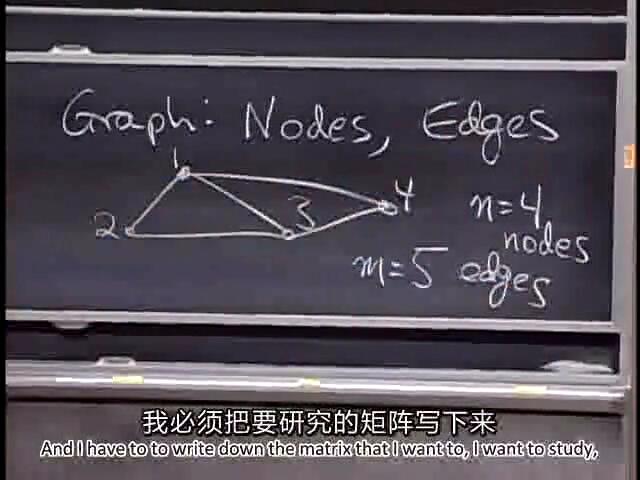 Graph: Nodes, Edges
1
2
3
4
n=4
nodes
m=5 edges
我必须把要研究的矩阵写下来
And I have to to write down the matrix that I want to, I want to study,